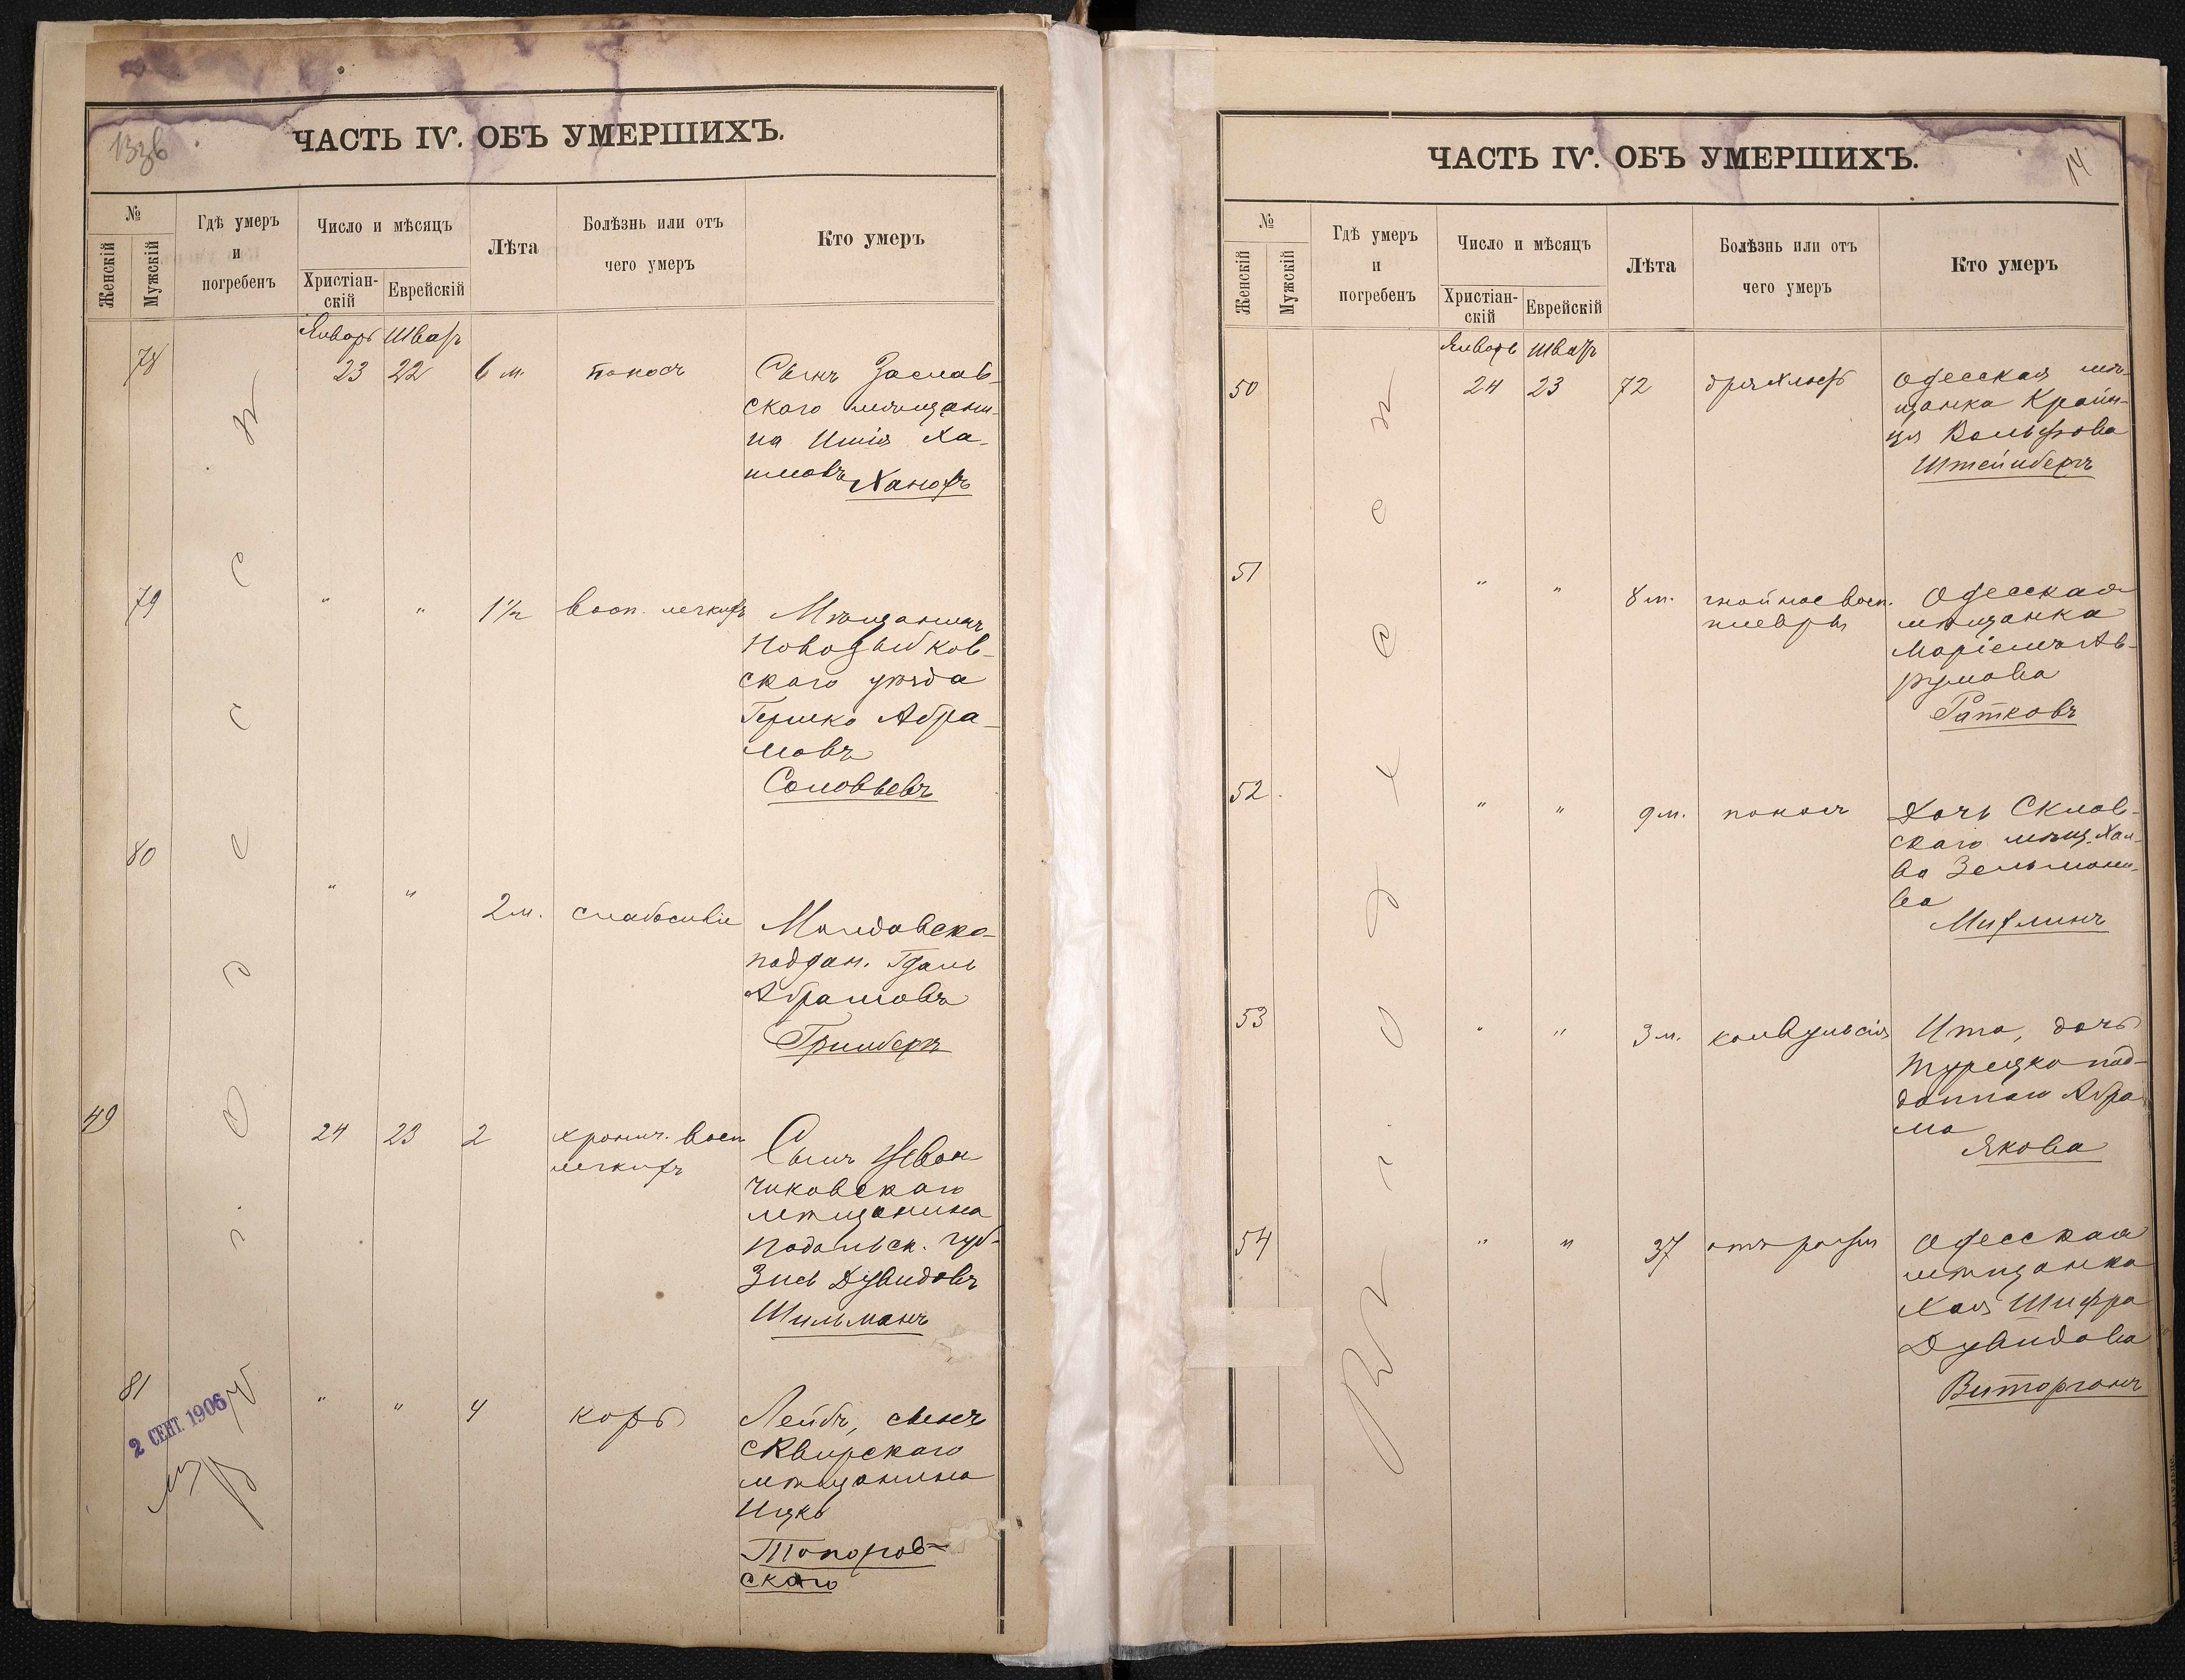 13об
ЧАСТЬ IV. ОБЪ УМЕРШИХЪ.
№
Женскій
Мужскій
Гдѣ умеръ
и
погребенъ
Число и мѣсяцъ
Христіан-
скій
Еврейскій
Лѣта
Болѣзнь или отъ
чего умеръ
Кто умеръ
Январь Шватъ
78 23 22 6 м. поносъ
Сынъ Заслав-
скаго мѣщани-
на Ха-
имовъ
79 " " 1½ восп. легкихъ
Мѣщанинъ
Новозыбков-
скаго уѣзда
Гершко Абра-
мовъ
Соловьевъ
80 " " 2 м. слабосиліе
Молдавско-
поддан. Гдаль
Абрамовъ
Гринбергъ
49 24 23 2 хронич. восп.
легкихъ
Сынъ
чиковскаго
мѣщанина
Подольск. губ.
Зись Дувидовъ
Шильманъ
81 " " 4 корь
Лейбъ, сынъ
Сквирскаго
мѣщанина
Ицко
Топоров-
скаго
2 СЕНТ. 1906
14
ЧАСТЬ IV. ОБЪ УМЕРШИХЪ.
№
Женскій
Мужскій
Гдѣ умеръ
и
погребенъ
Число и мѣсяцъ
Христіан-
скій
Еврейскій
Лѣта
Болѣзнь или отъ
чего умеръ
Кто умеръ
Январь Шватъ
50 24 23 72 дряхлость
Одесская мѣ-
щанка Крайн-
ця Вольфова
Штейнбергъ
51 " " 8 м. гнойное восп.
плевры
Одесская
мѣщанка
Маріемъ Ав-
румова
Ратковъ
52 " " 9 м. поносъ
Дочь
скаго мѣщ. Хаи-
ва Зельмано-
ва
Мифлинъ
53 " " 3 м. конвульсія
Ита, дочь
турецко под-
даннаго Абра
ма
Якова
54 " " 37 отъ родовъ
Одесская
мѣщанка
Хая Шифра
Дувидова
Виторганъ